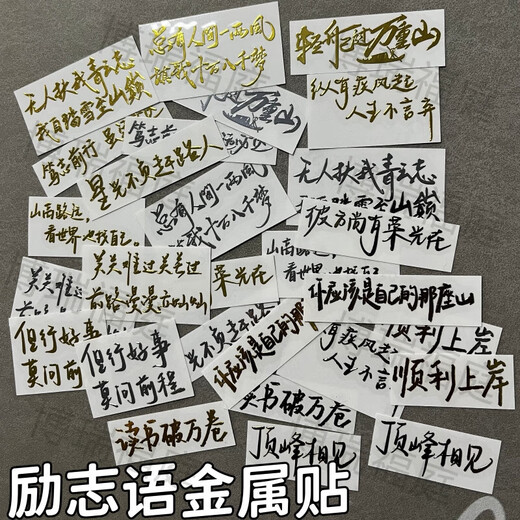 总有人间一两风
填我十万八千梦
轻舟已过万重山
无人扶我青云志
我自踏雪至山巅
纵有疾风起
人生不言弃
笃志前行
万重山
星光不负赶路人
总有人间一两风
填我十万八千梦
无人扶我青云志
山高路远
看世界也找自己
彼方尚有荣光在
关关难过关关过
前路漫漫亦灿灿
荣光在
看世界
你应该是自己的那座山
但行好事
莫问前
但行好事
莫问前程
光不负赶路
你应该是自己的那
有疾风起
人生不言
顺利上岸
顺利上岸
读书破万卷
读书破万卷
顶峰相见
顶峰相见
励志语金属贴